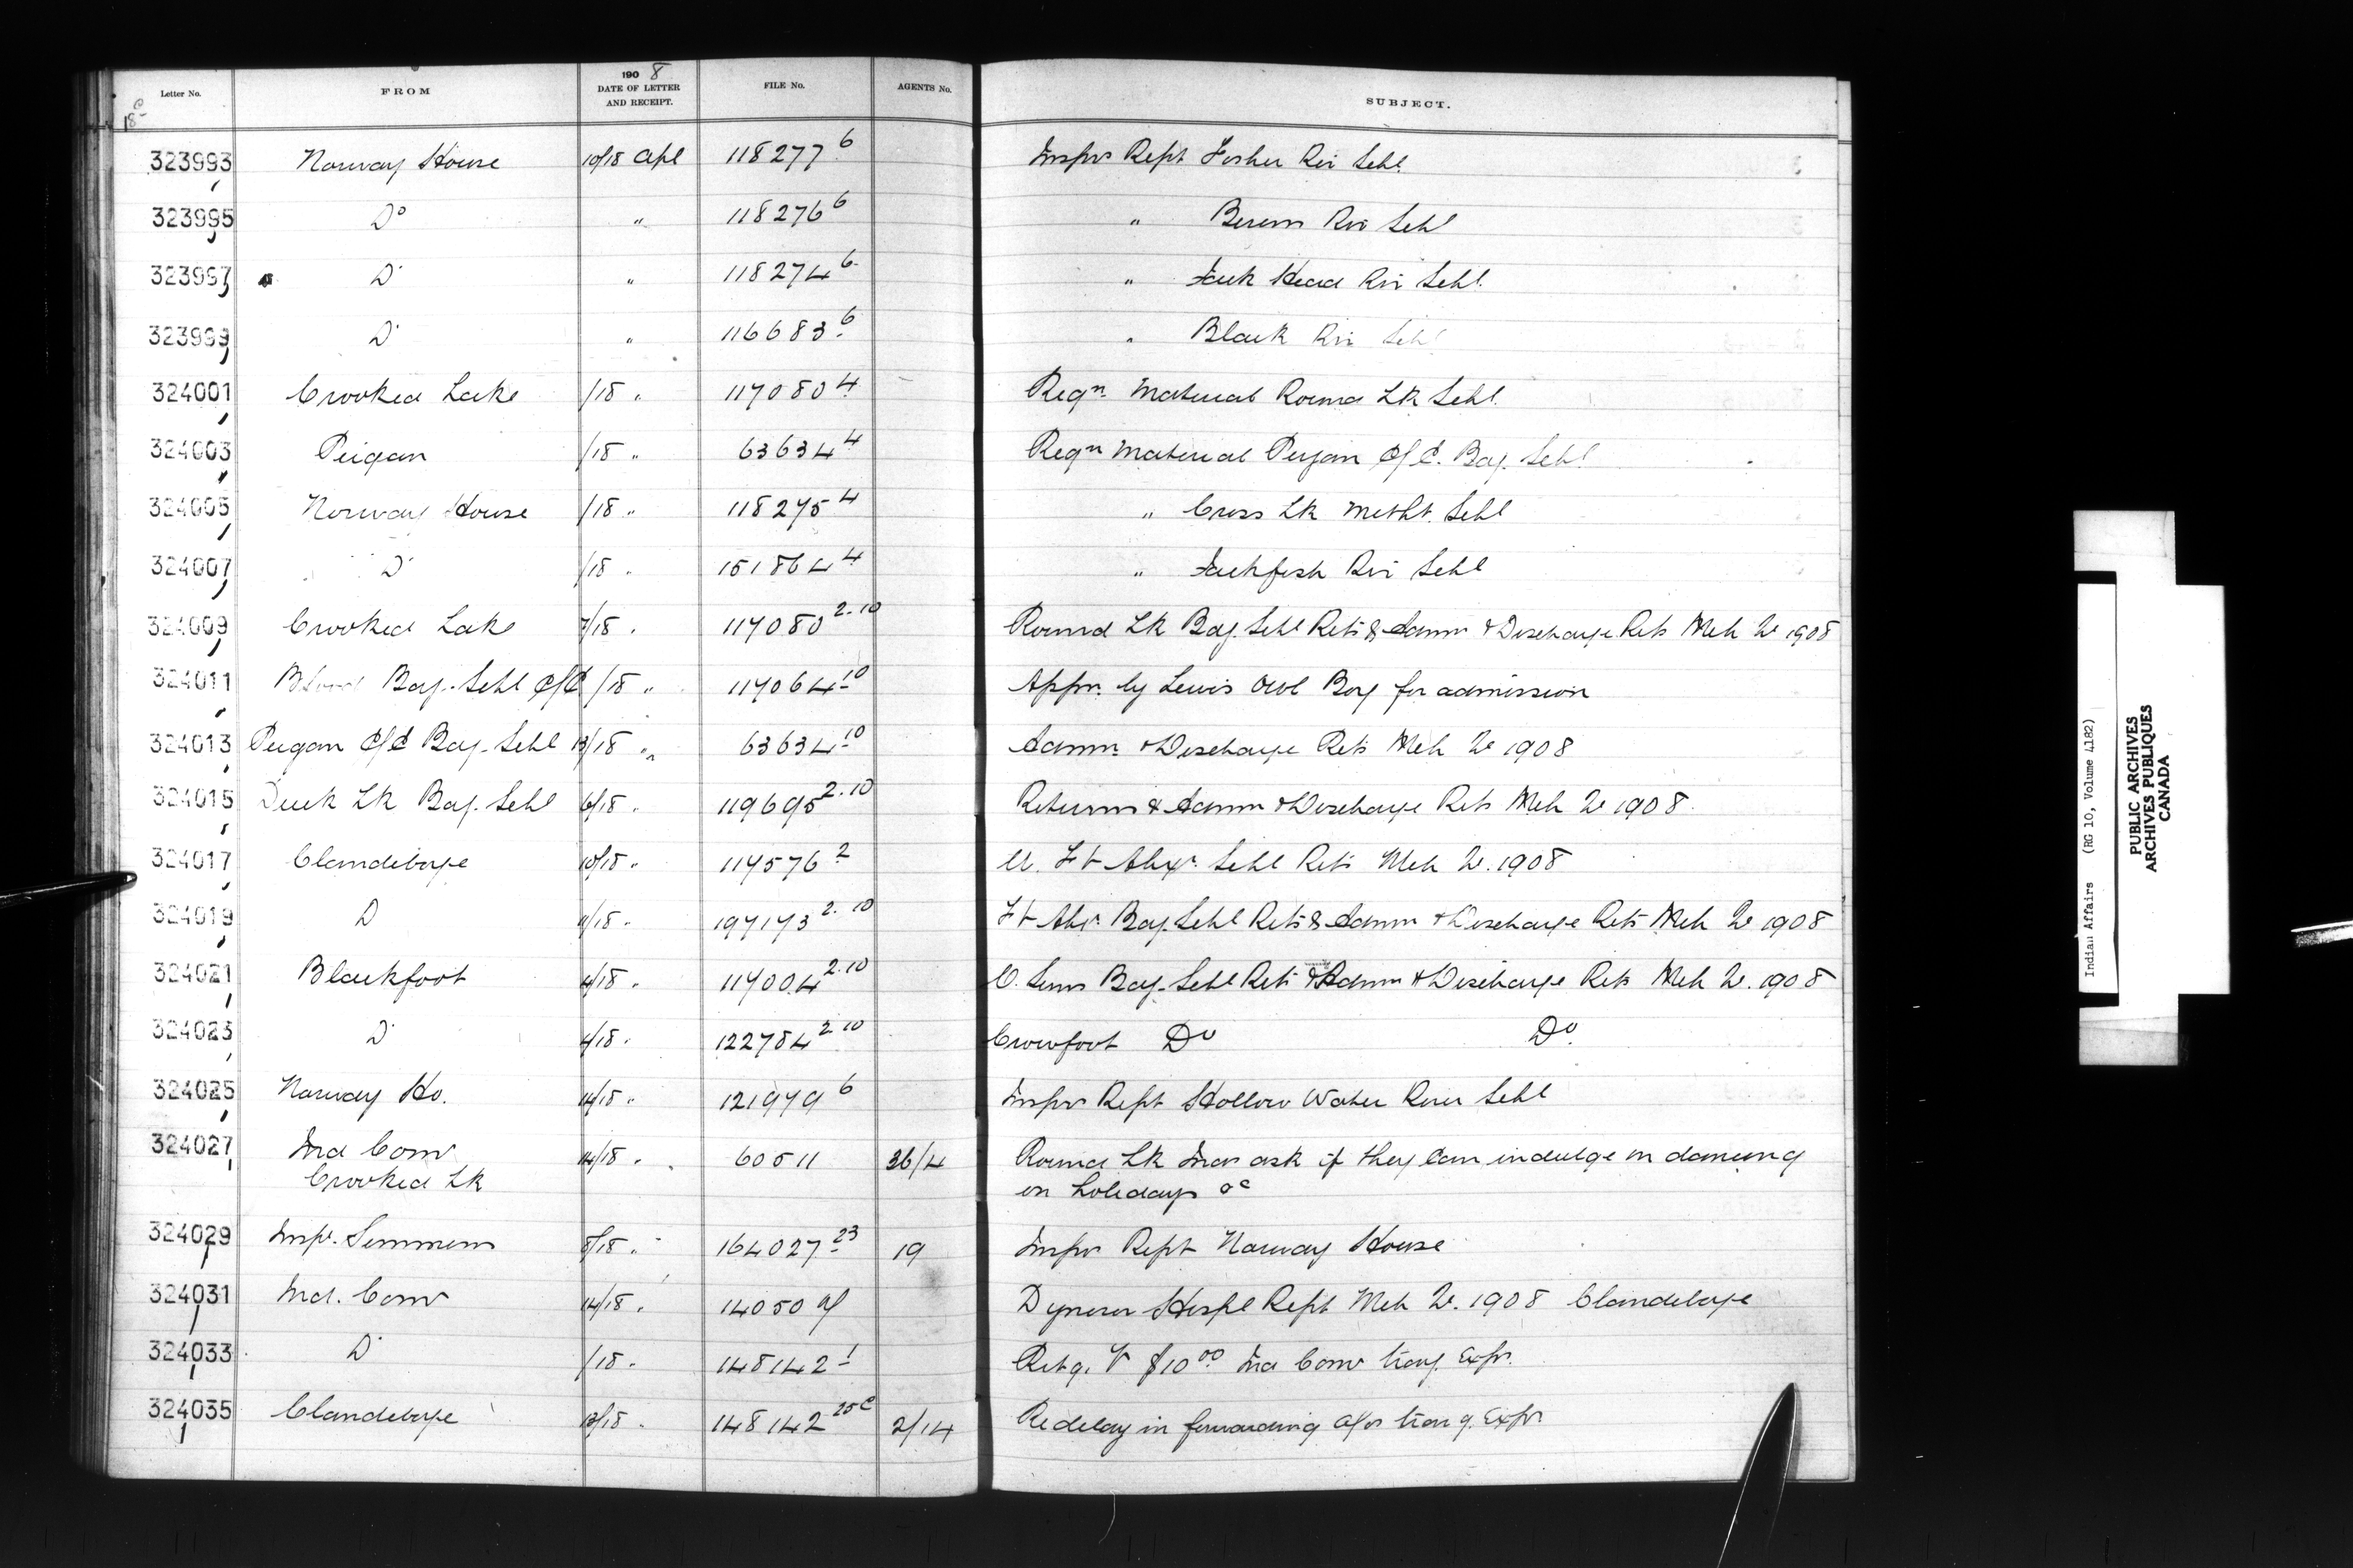 Letter No. FROM 190 8 DATE OF LETTER AND RECEIPT. FILE No. AGENTS No. SUBJECT.
18 c
323993 Norway House 10/18 Apl 118277 6 Inspr Rept Fisher Riv Schl.
323995 Do " 118276 6 " Berens Riv Schl
323997 D " 118274 6 " Jack Head Riv Schl.
323999 D " 116683 6 " Black Riv Schl
324001 Crooked Lake /18 " 117080 4 Reqn Material Round Lk Schl.
324003 Peigan /18 " 63634 4 Reqn Material Peigan C/E. Bdg. Schl
324005 Norway House /18 " 118275 4 " Cross Lk Metht. Schl
324007 D /18 " 151864 4 " Jackfish Riv Schl
324009 Crooked Lake 7/18 " 117080 2.10 Round Lk Bdg. Schl Rets & Admn & Discharge Rets Mch Qr 1908
324011 Blood Bdg. Schl C/E /18 " 117064 10 Appn. by Lewis Owl Boy for admission
324013 Peigan C/E Bdg. Schl 13/18 " 63634 10 Admn. & Discharge Rets Mch Qr 1908
324015 Duck Lk Bdg. Schl 6/18 " 119695 2.10 Returns & Admn & Discharge Rets Mch Qr 1908
324017 Clandeboye 10/18 " 114576 2 U. Ft Alexr. Schl Rets Mch Qr. 1908
324019 D 11/18 " 197173 2.10 Ft Alexr. Bdg. Schl Rets & Admn & Discharge Rets Mch Qr 1908
324021 Blackfoot 4/18 " 117004 2.10 O. Suns Bdg. Schl Rets & Admn & Discharge Rets Mch Qr. 1908
324023 D 4/18 " 122784 2.10 Crowfoot Do Do.
324025 Norway Ho. 14/18 " 121979 6 Inspr Rept Hollow Water River Schl
324027 Ind Comr 14/18 " 60511 36/4 Round Lk Inds ask if they can indulge in dancing
Crooked Lk on holidays &c
324029 Inspr. Semmens 8/18 " 164027 23 19 Inspr Rept Norway House
324031 Ind. Comr 14/18 " 14050 Dynevor Hospl Rept Mch Qr. 1908 Clandeboye
324033 D /18 " 148142 1 Retg. V $10 00 Ind Comr travg. Exps.
324035 Clandeboye 13/18 " 148142 25c 2/14 Re delay in forwarding a/cs travg. Exps.
Indian Affairs (RG 10, Volume 4182)
PUBLIC ARCHIVES
ARCHIVES PUBLIQUES
CANADA